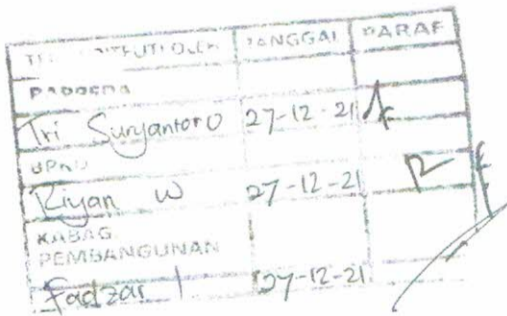 TANGGAL PARAF
Tri Suryantoro 27-12-21
Riyan W 27-12-21
KABAG.
PEMBANGUNAN
Fadzar 27-12-21